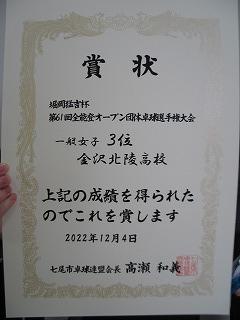 賞状
堀岡猛吉杯
第61回全能登オープン団体卓球選手権大会
一般女子 3位
金沢北陵高校
上記の成績を得られた
のでこれを賞します
2022年12月4日
七尾市卓球連盟会長 高瀬 和義